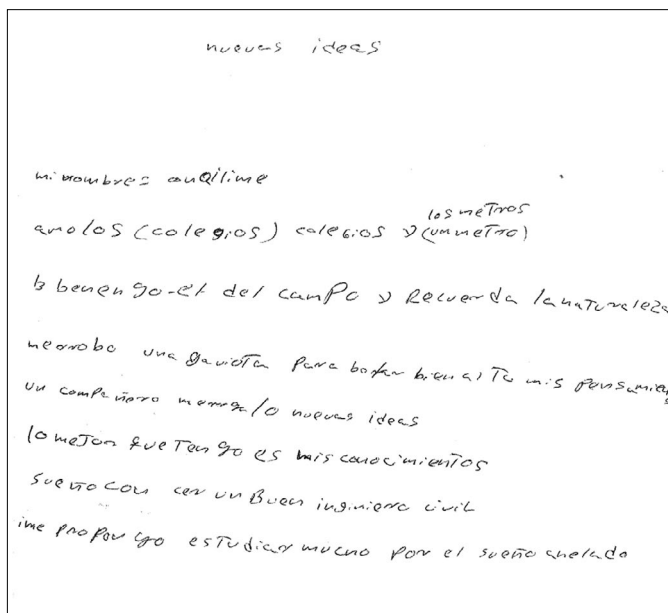 nuevas ideas
mi nombres anqilime
amo los (colegios) colegios y (un metro) los metros
b benengo-el del campo y Recuerda la naturaleza
merrobo una gaviota para botar bien alto mis pensamien
un compañero merrega/o nuevas ideas
lo mejor que tengo es mis conocimientos
sueño con cer un Buen inginiero civil
ime propongo estudiar mucho por el sueño anelado